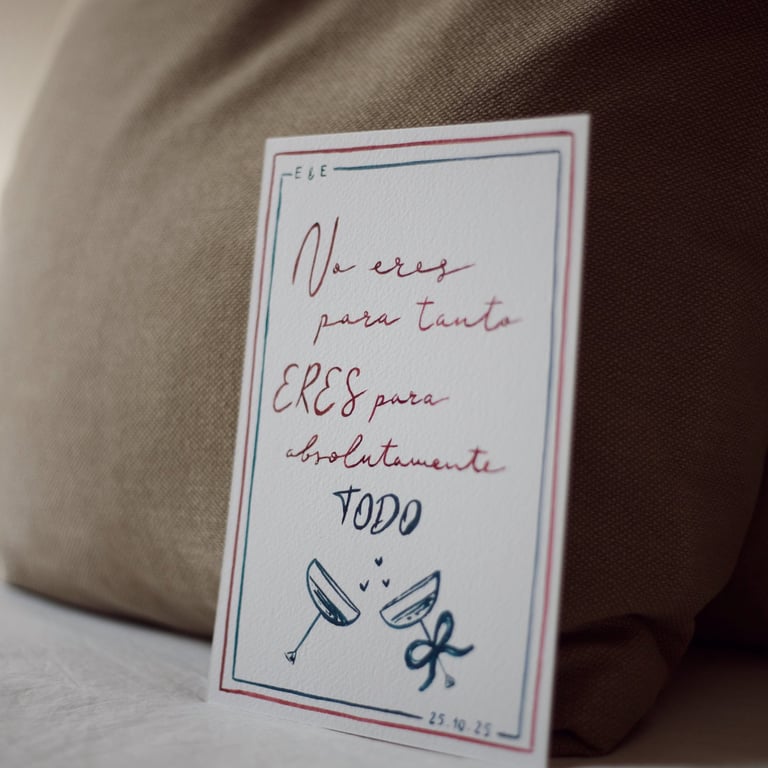 E & E
No eres
para tanto
ERES para
absolutamente
TODO
25.10.25